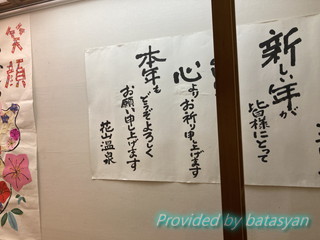 新しい年が
皆様にとって
心よりお祈り申し上げます
本年もどうぞよろしく
お願い申し上げます
花山温泉
笑顔
Provided by batasyan